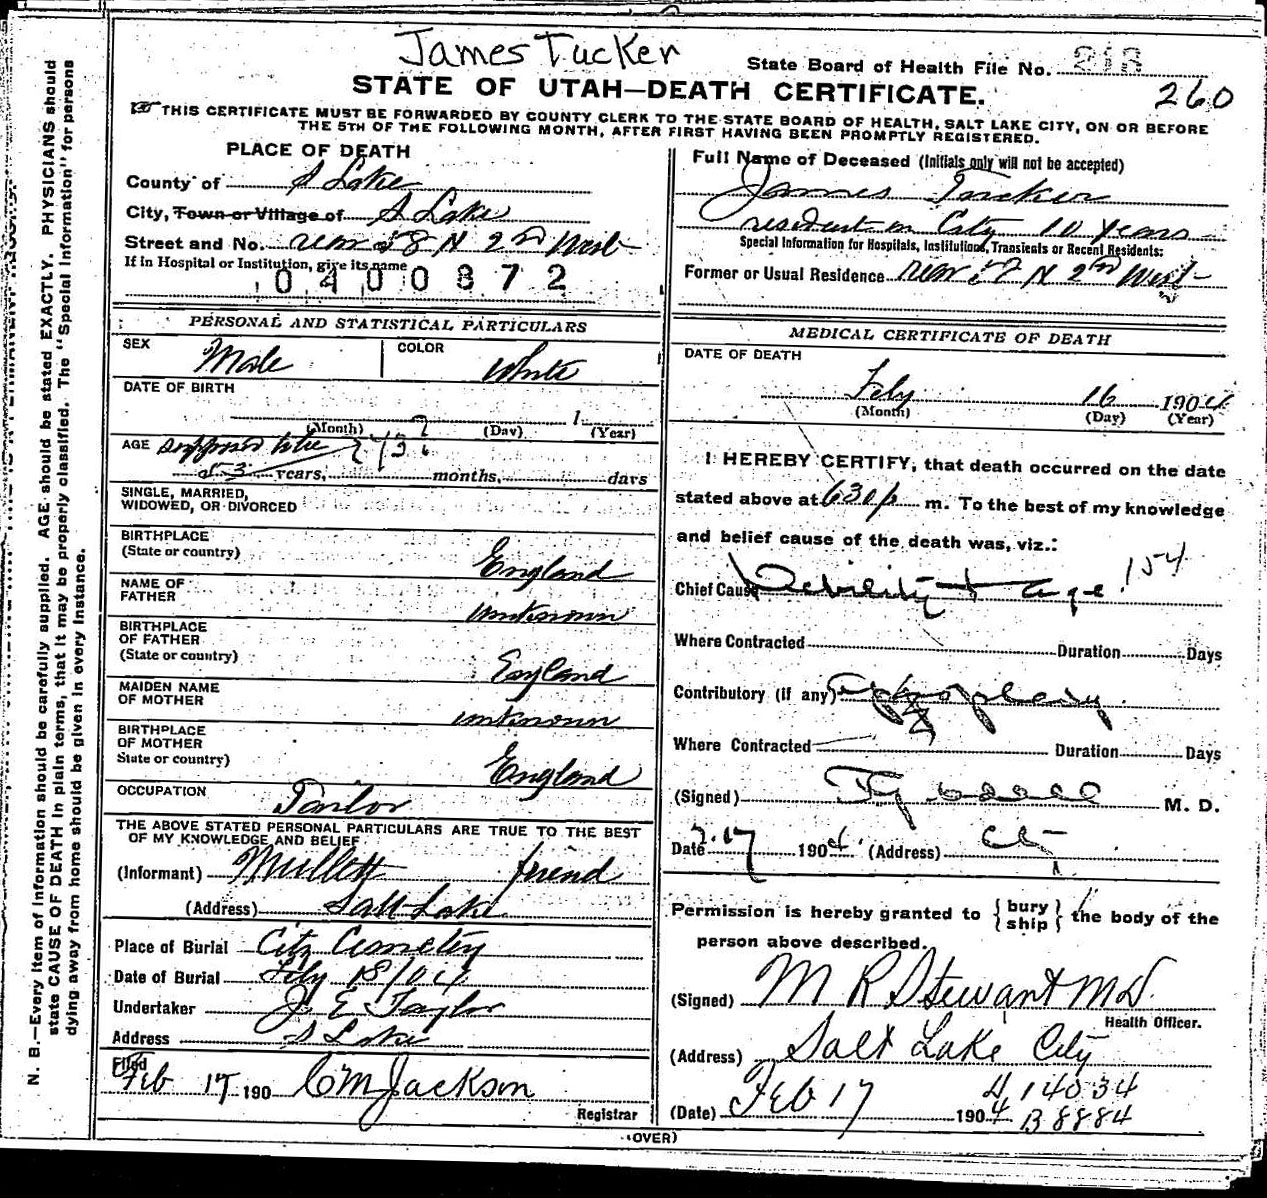 James Tucker
State Board of Health File No. 218
STATE OF UTAH—DEATH CERTIFICATE.
260
THIS CERTIFICATE MUST BE FORWARDED BY COUNTY CLERK TO THE STATE BOARD OF HEALTH, SALT LAKE CITY, ON OR BEFORE
THE 5TH OF THE FOLLOWING MONTH, AFTER FIRST HAVING BEEN PROMPTLY REGISTERED.
PLACE OF DEATH
County of S Lake
City, Town or Village of S Lake
Street and No. rear 58 N 2nd West
If in Hospital or Institution, give its name
0400872
Full Name of Deceased (Initials only will not be accepted)
James Tucker
resident in City 10 years
Special Information for Hospitals, Institutions, Transients or Recent Residents:
Former or Usual Residence rear 58 N 2nd West
PERSONAL AND STATISTICAL PARTICULARS
SEX Male COLOR White
DATE OF BIRTH
? 1
(Month) (Day) (Year)
AGE supposed to be
years, months, days
SINGLE, MARRIED,
WIDOWED, OR DIVORCED
BIRTHPLACE
(State or country) England
NAME OF
FATHER unknown
BIRTHPLACE
OF FATHER
(State or country) England
MAIDEN NAME
OF MOTHER unknown
BIRTHPLACE
OF MOTHER
State or country) England
OCCUPATION Tailor
THE ABOVE STATED PERSONAL PARTICULARS ARE TRUE TO THE BEST
OF MY KNOWLEDGE AND BELIEF
(Informant) Mullett friend
(Address) Salt Lake
Place of Burial City Cemetery
Date of Burial Feby 18/04
Undertaker J E Taylor
Address S Lake
Filed
Feb 17 190 C M Jackson
Registrar
MEDICAL CERTIFICATE OF DEATH
DATE OF DEATH
Feby 16 1904
(Month) (Day) (Year)
I HEREBY CERTIFY, that death occurred on the date
stated above at 630 p m. To the best of my knowledge
and belief cause of the death was, viz.:
Chief Cause Debility + age 154
Where Contracted Duration Days
Contributory (if any) Apoplexy
Where Contracted Duration Days
(Signed) M. D.
Date 2.17 1904 (Address) City
Permission is hereby granted to {bury
ship} the body of the
person above described.
(Signed) M R Stewart MD.
Health Officer.
(Address) Salt Lake City
(Date) Feb 17 1904
414034
B 8884
(OVER)
N. B.—Every item of information should be carefully supplied. AGE should be stated EXACTLY. PHYSICIANS should
state CAUSE OF DEATH in plain terms, that it may be properly classified. The "Special Information" for persons
dying away from home should be given in every instance.